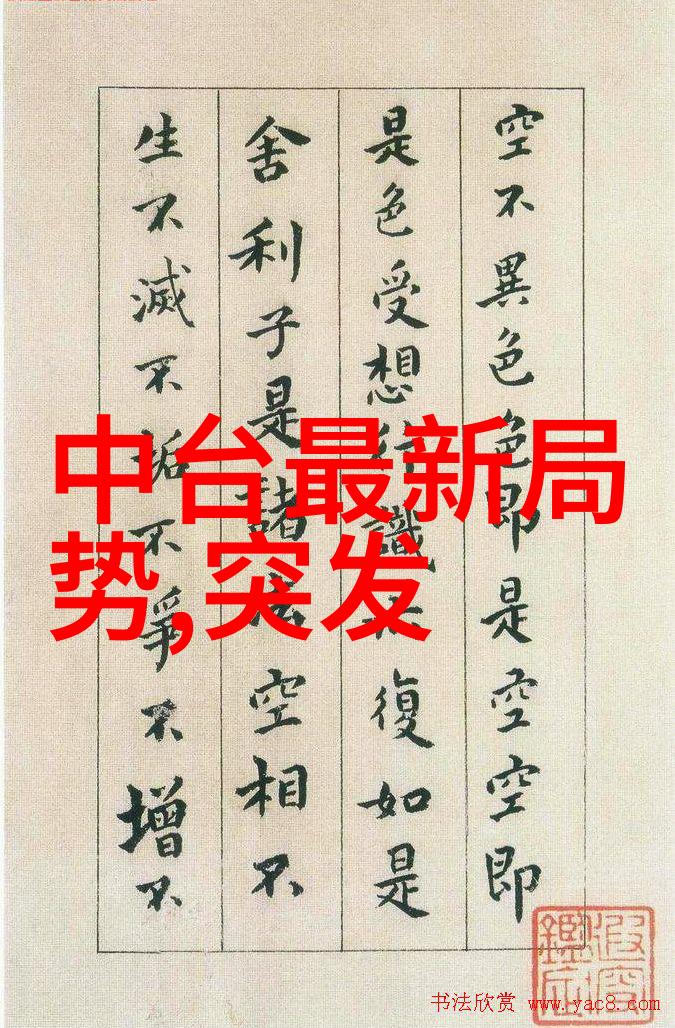 空不異色色即是空空即
是色受想行識亦復如是
舍利子是諸法空相不
生不滅不垢不淨不增不
中台最新局
势,突发
书法欣赏 www.yac8.com